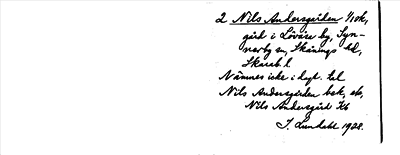 2 Nils Andersgården 1/10k,
gård i Lövåse by, Syn-
nerby sn, Skånings hd,
Skarab l
Nämnes icke i dyl. till
Nils Andersgården bek, ek,
Nils Andersgård Kb
J. Lundahl 1928.